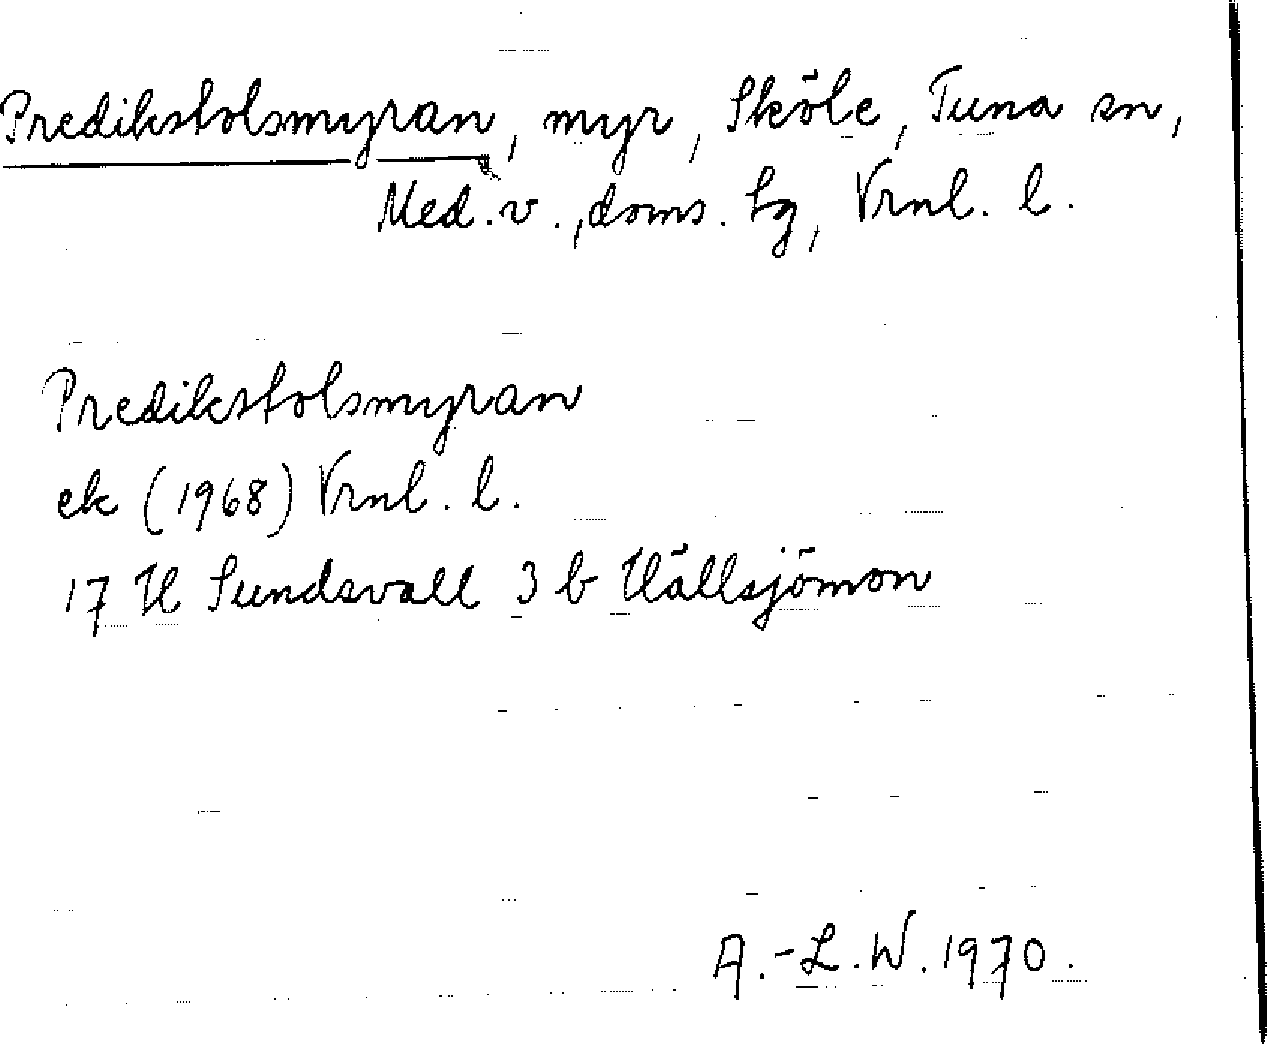 Predikstolsmyran, myr, Sköle, Tuna sn,
Med. v., doms. tg, Vrnl. l.
Predikstolsmyran
ek (1968) Vrnl. l.
17 H Sundsvall 3 b Hällsjömon
A.-L.W. 1970.